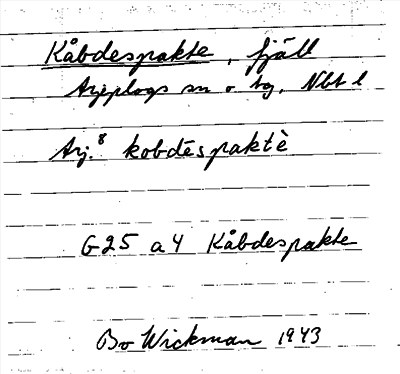 Kåbdespakte, fjäll
Arjeplogs sn o tg. Nbt l
Arj.⁸ kobdēspaktè
G25 a4 Kåbdespakte
Bo Wickman 1943